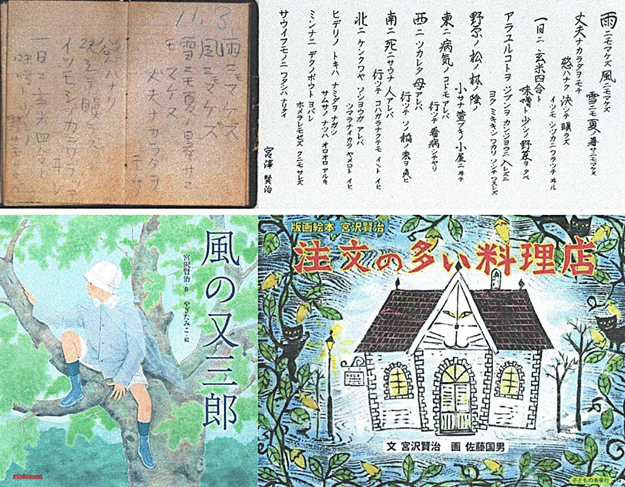 11.3.
雨ニモマケズ
風ニモマケズ
雪ニモ夏ノ暑サニモ
マケヌ
丈夫ナカラダヲ
慾ハナク
決シテ瞋ラズ
一日ニ玄米四
雨ニモマケズ 風ニモマケズ
雪ニモ夏ノ暑サニモマケヌ
丈夫ナカラダヲモチ
慾ハナク 決シテ瞋ラズ
イツモ シヅカニワラッテヰル
一日ニ玄米四合ト
味噌ト少シノ野菜ヲタベ
アラユルコトヲ ジブンヲカンジョウニ入レズニ
ヨクミキキシワカリ ソシテワスレズ
野原ノ松ノ林ノ陰ノ
小サナ萱ブキノ小屋ニヰテ
東ニ病気ノコドモアレバ
行ッテ看病シテヤリ
西ニツカレタ母アレバ
行ッテソノ稲ノ束ヲ負ヒ
南ニ死ニサウナ人アレバ
行ッテコハガラナクテモイヽトイヒ
北ニケンクヮヤソショウガアレバ
ツマラナイカラヤメロトイヒ
ヒデリノトキハ ナミダヲナガシ
サムサノナツハ オロオロアルキ
ミンナニ デクノボウトヨバレ
ホメラレモセズ クニモサレズ
サウイフモノニ ワタシハナリタイ
宮澤 賢治
風の又三郎
宮沢賢治・作
やきたみこ・絵
版画絵本 宮沢賢治
注文の多い料理店
文 宮沢賢治 画 佐藤国男
子どもの未来社